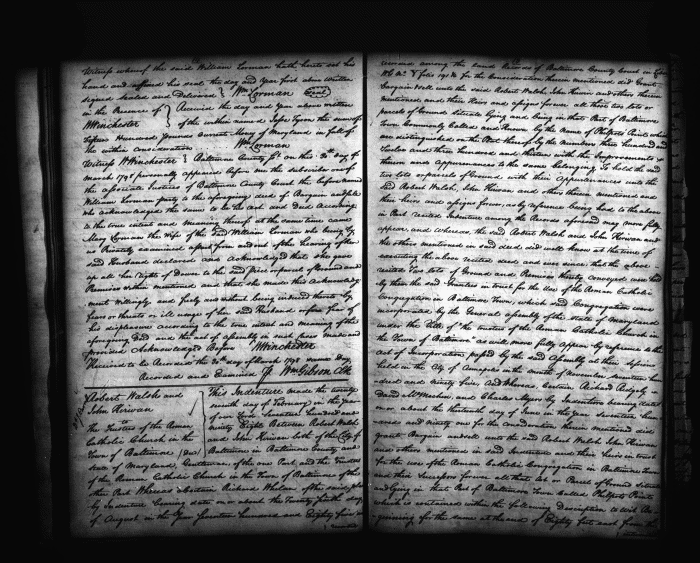 Witness whereof the said William Lorman hath hereto set his
hand and affixed his seal the day and year first above written
signed sealed and Delivered } Wm Lorman Seal
in the Presence of } Received the day and year above written
WWinchester } of the within named Jesse Tyson the sum of
Fifteen Hundred Pounds current Money of Maryland in full of
the within consideration Wm Lorman
Witness WWinchester } Baltimore County ss on this 30th day of
March 1798 personally appeared before me the subscriber one of
the associate Justices of Baltimore County Court the before named
William Lorman party to the aforegoing deed of Bargain and sale
who acknowledged the same to be his act and Deed According
to the true intent and meaning thereof at the same time came
Mary Lorman the Wife of the said William Lorman who being by
me Privately examined apart from and out of the hearing of her
said Husband declared and Acknowledged that she gave
up all her Right of Dower to the said piece or parcel of Ground and
Premises within mentioned and that she made this Acknowledg
ment Willingly and freely and without being induced thereto by
fears or threats or ill usage of her said Husband or from fear of
his displeasure according to the true intent and meaning of the
aforegoing Deed and the act of assembly in such case made and
provided Acknowledged Before WWinchester
Received to be Recorded the 30th day of March 1798 same Day
Recorded and Examined Pr Wm Gibson Clk
Robert Walsh and
John Kirwan
The Trustees of the Roman
Catholic Church in the
Town of Baltimore (Deed)
This Indenture made the twenty
seventh day of February in the year
of our Lord Seventeen hundred and
ninety Eight Between Robert Walsh
and John Kirwan both of the City of
Baltimore in Baltimore County and
State of Maryland, Gentlemen, of the one Part and the Trustees
of the Roman Catholic Church in the Town of Baltimore of the
other Part Whereas a certain Richard Whelan of the same place
by Indenture bearing date on or about the Twenty fifth day
of August in the Year Seventeen hundred and Eighty five
recorded among the Land Records of Baltimore County Court in Liber
WG No folio for the Consideration therein mentioned did Grant
Bargain & sell unto the said Robert Walsh John Kirwan and others therein
mentioned and their Heirs and assigns forever all those two lots or
parcels of Ground situate lying and being in that Part of Baltimore
Town commonly Called and Known by the name of Philpots Point which
are distinguished on the Plat thereof by the numbers three hundred and
twelve and three hundred and thirteen with the Improvements &
therein and Appurtenances to the same belonging To hold the said
two lots or parcels of Ground with their Appurtenances unto the
said Robert Walsh, John Kirwan and others therein mentioned and
their heirs and assigns forever, as by reference being had to the above
in Part recited Indenture among the Records aforesaid may more fully
appear and Whereas, the said Robert Walsh and John Kirwan and
the others mentioned in said deed did well know at the time of
executing the above recited deed, and are aware that the above
recited Two lots of Ground and Premises thereby conveyed were held
by them the said Trustees in trust for the Use of the Roman Catholic
Congregation in Baltimore Town, which said Congregation were
incorporated by the General assembly of the state of Maryland
under the Title of "the trustees of the Roman Catholic Church in
the Town of Baltimore" as will more fully appear by reference to the
Act of Incorporation passed by the said Assembly at their session
held in the City of Annapolis in the month of November, seventeen hun
dred and ninety five, And Whereas Certain Richard Ridgely
David McMechen, and Charles Myers by Indenture bearing date
on or about the thirteenth day of June in the Year seventeen hun
dred and ninety one for the consideration therein mentioned did
grant Bargain and sell unto the said Robert Walsh John Kirwan
and others mentioned in said Indenture and their heirs in trust
for the use of the Roman Catholic Congregation in Baltimore Town
and their Successors forever all that Lot or Parcel of Ground situate
and lying in that Part of Baltimore Town Called Philpots Point
which is contained within the following description to Wit Be
ginning for the same at the end of Eighty feet east from the